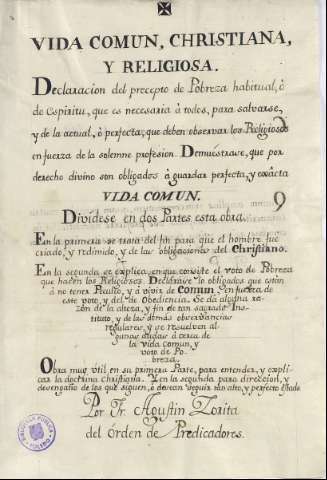 VIDA COMUN, CHRISTIANA,
Y RELIGIOSA.
Declaracion del precepto de Pobreza habitual, ò
de Espiritu, que es necesaria à todos, para salvarse,
y de la actual, ò perfecta, que deben observar los Religiosos
en fuerza de la solemne profesion. Demuéstrase, que por
derecho divino son obligados à guardar perfecta, y exácta
VIDA COMUN.
Dividese en dos Partes esta obra.
En la primera se trata del fin para que el hombre fue
criado, y redimido, y de las obligaciones del Christiano.
En la segunda se explica, en que consiste el voto de Pobreza
que hacen los Religiosos. Declarase lo obligados que estan
à no tener Peculio, y à vivir de Comun en fuerza de
este voto, y del de Obediencia. Se dà alguna ra-
zon de la alteza, y fin de tan sagrado Insti-
tuto, y de las demàs observancias
regulares, y se resuelven al-
gunas dudas à cerca de
la Vida comun, y
voto de Po-
breza.
Obra muy util en su primera Parte, para entender, y expli-
car la doctrina Christiana. Y en la segunda para direccion, y
desengaño de los que siguen, ò desean seguir un alto, y perfecto estado
Por Fr. Agustin Zorita
del Órden de Predicadores.